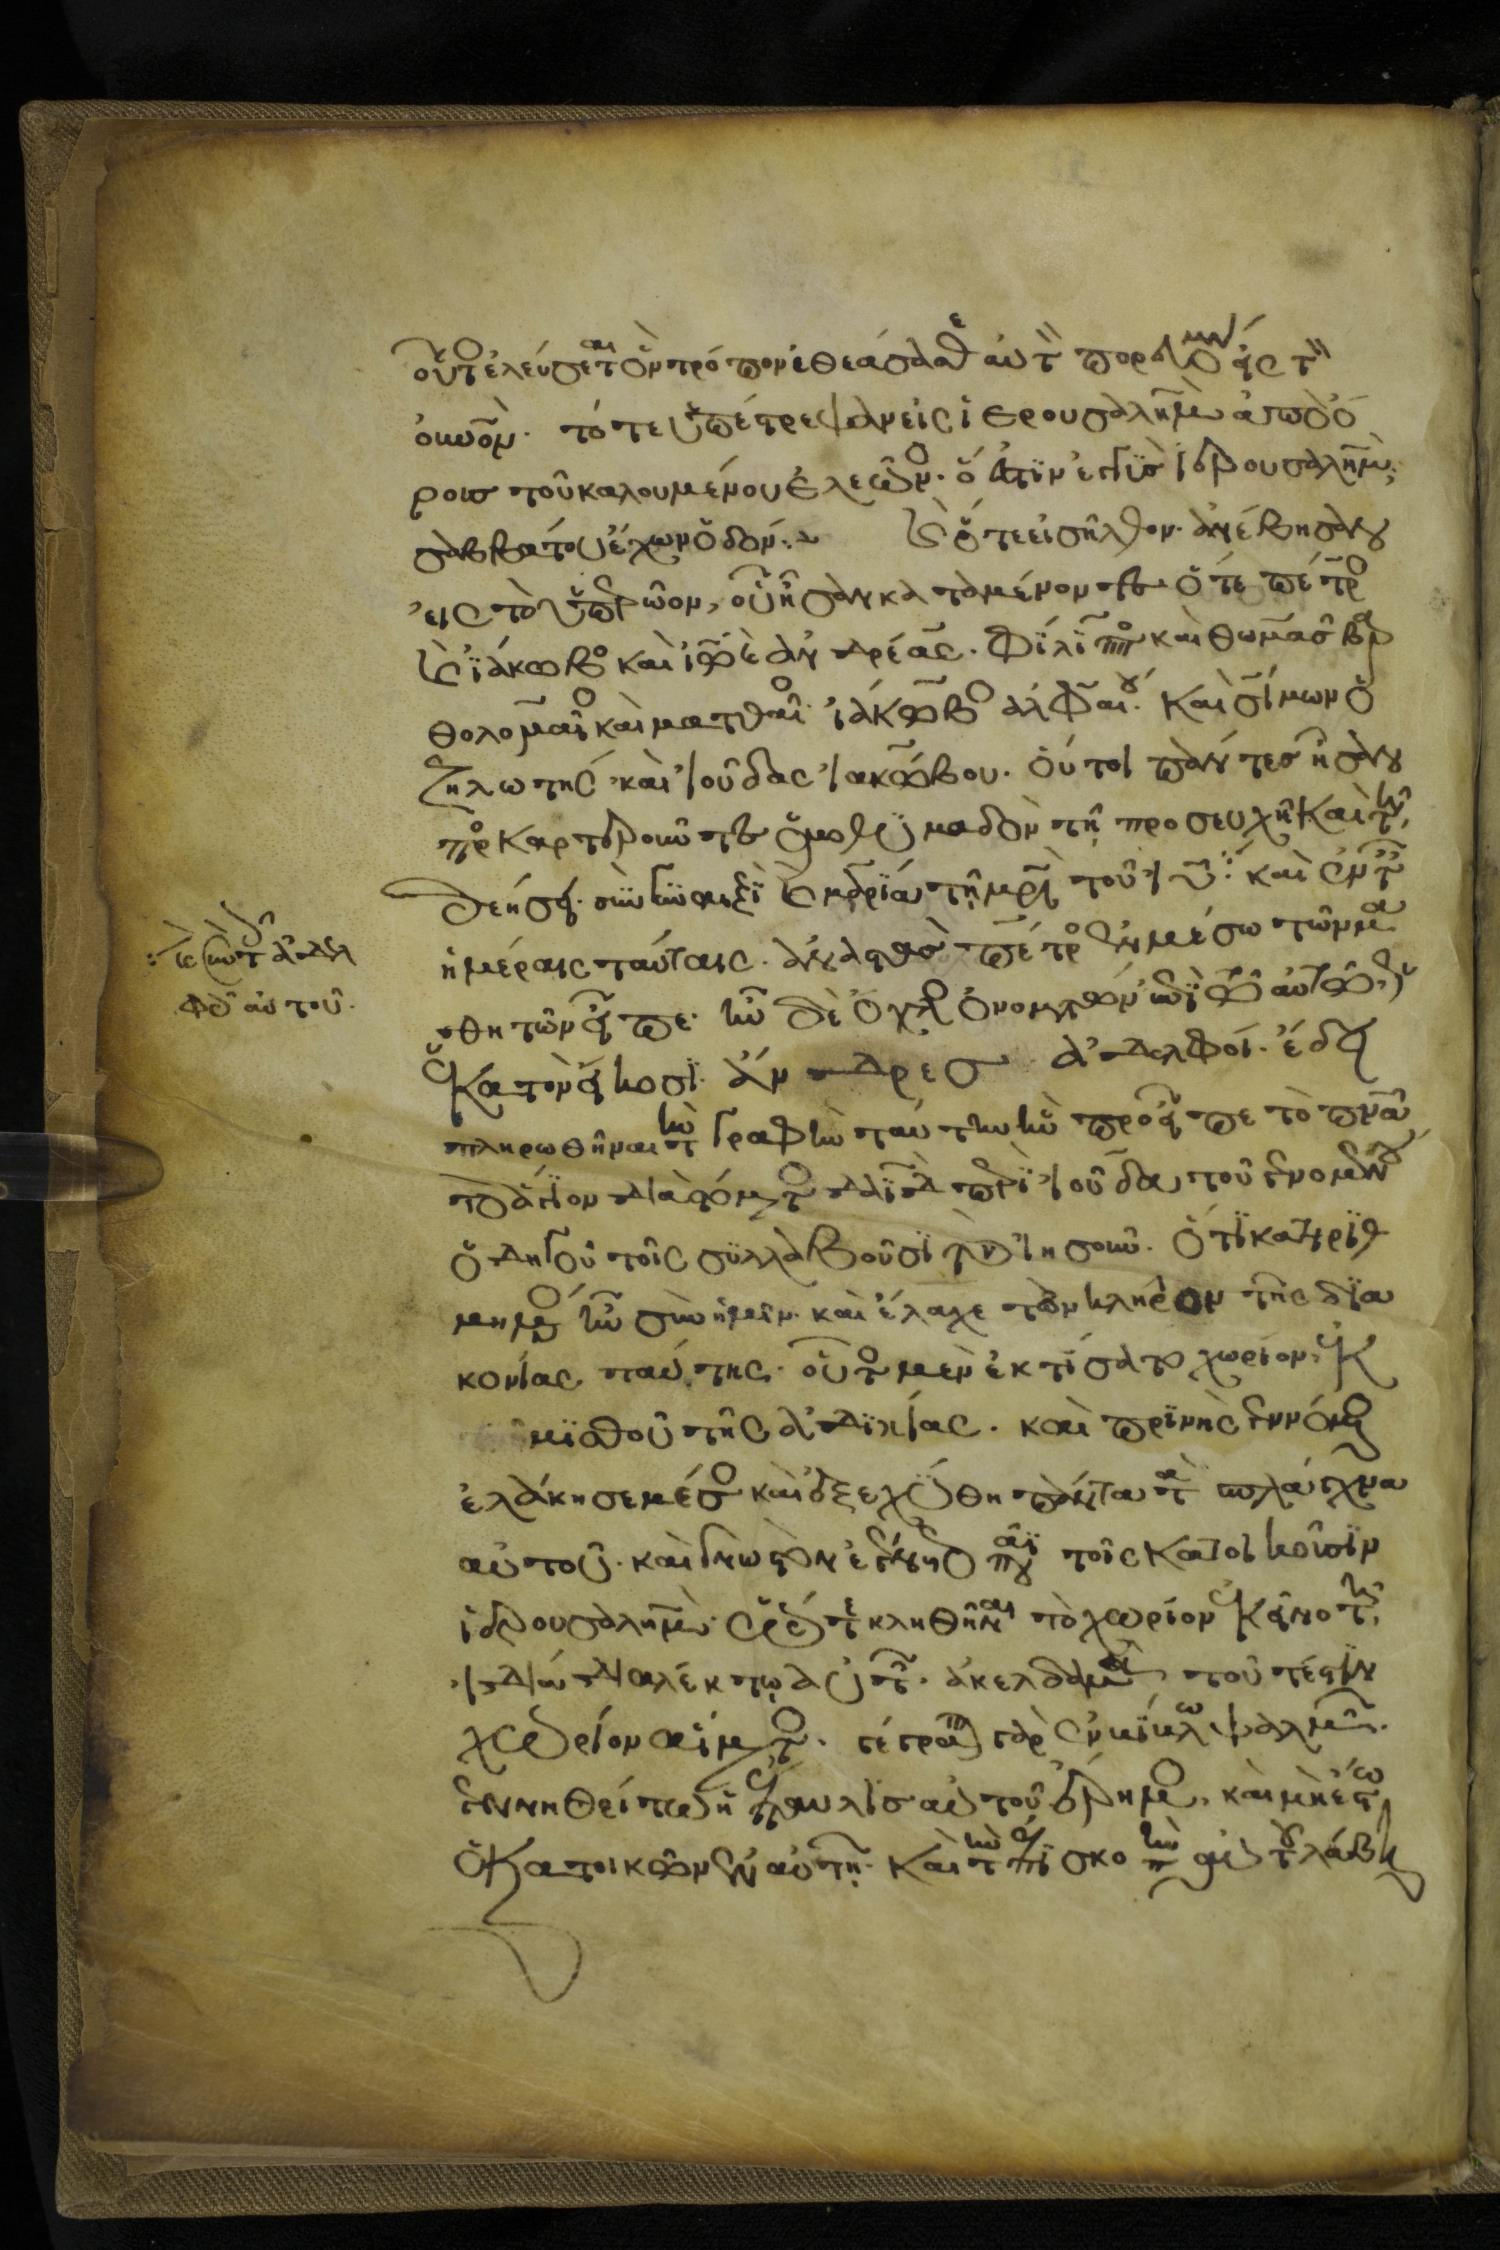 οὕτ ἐλεύσεται ὃν τρόπον ἐθεάσασθε αὐτὸν πορευόμενον εἰς τὸν
οὐνον· τότε ὑπέστρεψαν εἰς ἱερουσαλὴμ ἀπὸ ὄ
ρους τοῦ καλουμένου ἐλεῶνος· ὅ ἐστιν ἐγγὺς ἱερουσαλὴμ·
σαββάτου ἔχων ὁδόν· καὶ ὅτε εἰσῆλθον· ἀνέβησαν
εἰς τὸ ὑπερῶον, οὗ ἦσαν καταμένοντες ὅ τε πέτρος
καὶ ἰάκωβος καὶ ἰωάννης καὶ ἀνδρέας· φίλιππος καὶ θωμᾶς βαρ
θολομαῖος καὶ ματθαῖος· ἰάκωβος ἀλφαίου· καὶ σίμων ὁ
ζηλωτής· καὶ ἰούδας ἰακώβου· οὗτοι πάντες ἦσαν
προσκαρτεροῦντες ὁμοθυμαδὸν τῇ προσευχῇ καὶ τῇ
δεήσει· σὺν γυναιξὶ καὶ μαρίᾳ τῇ μητρὶ τοῦ ἰυ· καὶ ἐν ταῖς
καὶ σὺν τοῖς ἀδελ
φοῖς αὐτοῦ·
ἡμέραις ταύταις· ἀναστὰς πέτρος ἐν μέσω τῶν μα
θητῶν εἶπε· ἦν δὲ ὄχλος ὀνομάτων ἐπὶ τὸ αὐτὸ ὡς
ἑκατὸν εἴκοσι· ἄνδρες ἀδελφοί· ἔδει
πληρωθῆναι τὴν γραφὴν ταύτην ἣν προεῖπε τὸ πνα
τὸ ἅγιον διὰ στόματος δαδ περὶ ἰούδα τοῦ γενομένου
ὁδηγοῦ τοῖς συλλαβοῦσι τὸν ἰησοῦν· ὅτι κατηριθ
μημένος ἦν σὺν ἡμῖν· καὶ ἔλαχε τὸν κλῆρον τῆς δια
κονίας ταύτης· οὗτος μὲν ἐκτήσατο χωρίον ἐκ
μισθοῦ τῆς ἀδικίας· καὶ πρηνὴς γενόμενος
ἐλάκησε μέσος καὶ ἐξεχύθη πάντα τὰ σπλάγχνα
αὐτοῦ· καὶ γνωστὸν ἐγένετο πᾶσι τοῖς κατοικοῦσιν
ἱερουσαλήμ· ὥστε κληθῆναι τὸ χωρίον ἐκεῖνο τῇ
ἰδίᾳ διαλέκτῳ αὐτῶν· ἀκελδαμὰ τουτέστιν
χωρίον αἵματος· γέγραπται γὰρ ἐν βίβλω ψαλμῶν·
γεννηθείτω ἡ ἔπαυλις αὐτοῦ ἔρημος, καὶ μὴ ἔστω
ὁ κατοικῶν ἐν αὐτῇ· καὶ τὴν ἐπισκοπὴν αὐτοῦ λάβοι